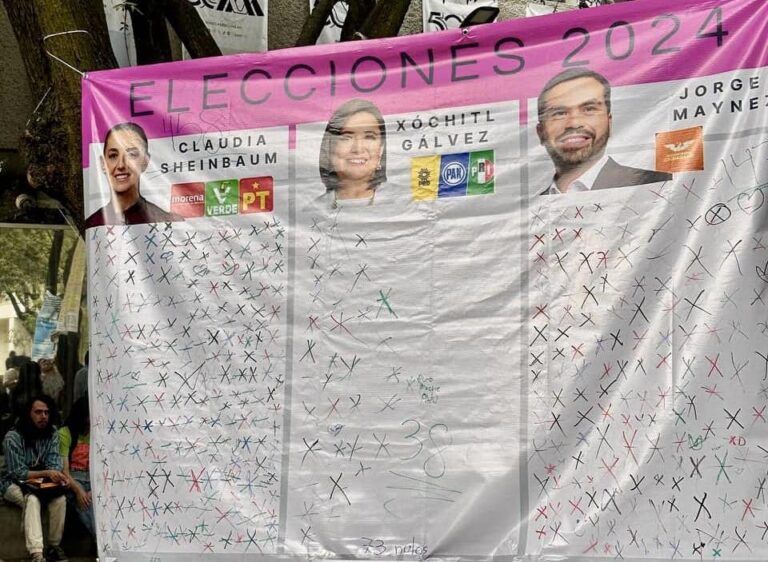 ELECCIONES 2024
CLAUDIA
SHEINBAUM
morena
VERDE
PT
XÓCHITL
GÁLVEZ
PRD
PAN
PRI
JORGE
MAYNEZ
38
73 nulos